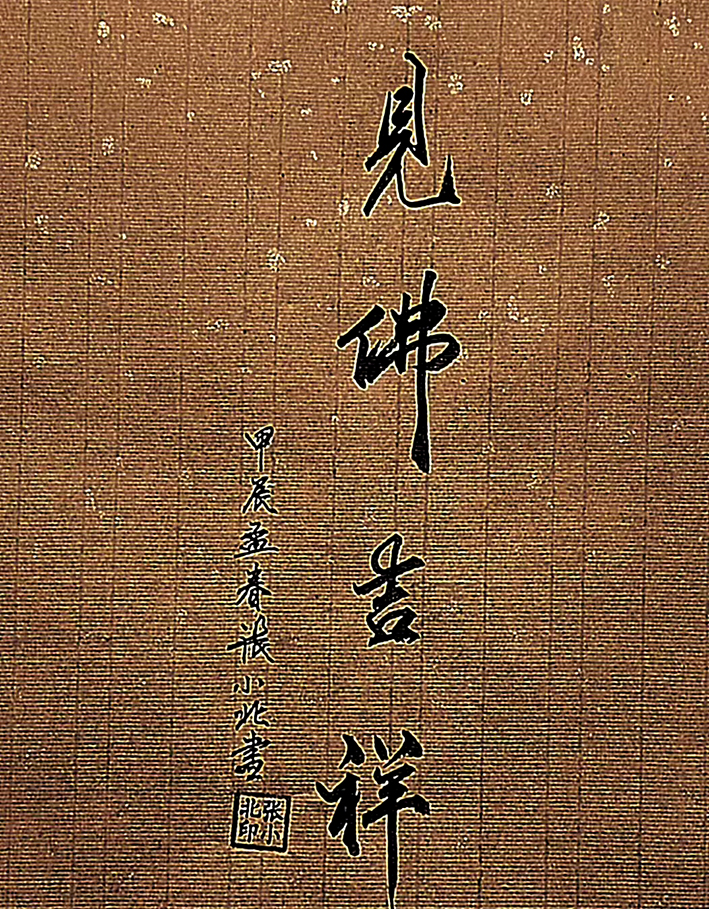 見佛吉祥
甲辰孟春張小北書
张小北印